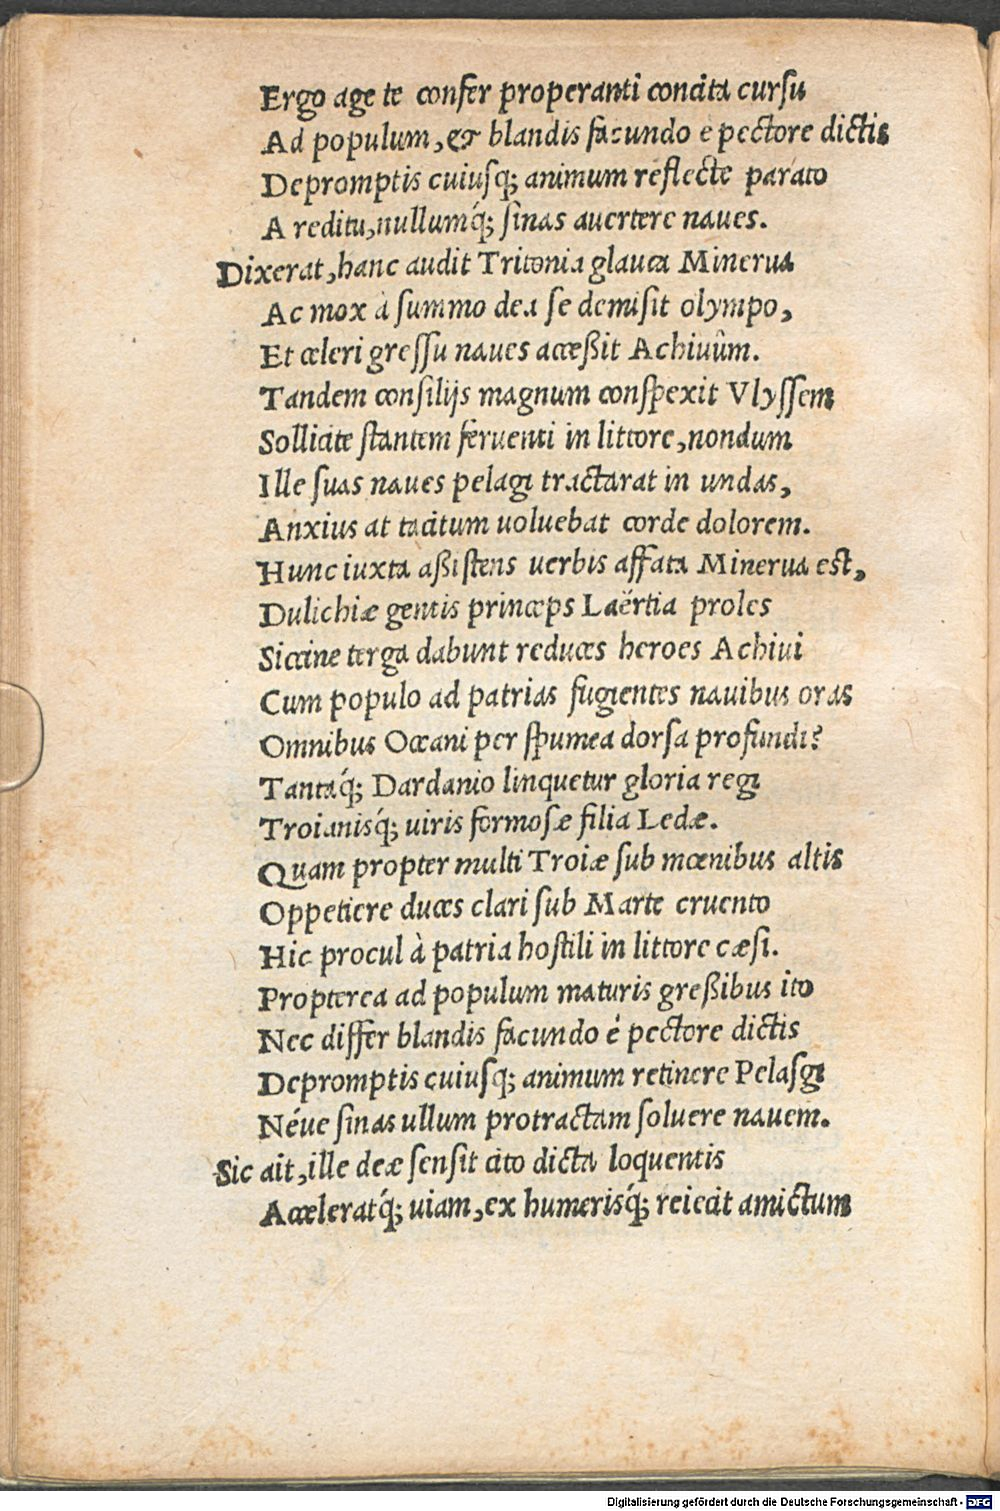 Ergo age te confer properanti concita cursu
Ad populum, & blandis facundo e pectore dictis
Depromptis cuiusq; animum reflecte parato
A reditu, nullumq́; sinas auertere naues.
Dixerat, hanc audit Tritonia glauca Minerua
Ac mox à summo dea se demisit olympo,
Et celeri gressu naues acceßit Achiuûm.
Tandem consilijs magnum conspexit Vlyssem
Sollicite stantem feruenti in littore, nondum
Ille suas naues pelagi tractarat in undas,
Anxius at tacitum uoluebat corde dolorem.
Hunc iuxta aßistens uerbis affata Minerua est,
Dulichiæ gentis princeps Laërtia proles
Siccine terga dabunt reduces heroes Achiui
Cum populo ad patrias fugientes nauibus oras
Omnibus Oceani per spumea dorsa profundi?
Tantaq́; Dardanio linquetur gloria regi
Troianisq́; uiris formosæ filia Ledæ.
Quam propter multi Troiæ sub mœnibus altis
Oppetiere duces clari sub Marte cruento
Hic procul à patria hostili in littore cæsi.
Propterea ad populum maturis greßibus ito
Nec differ blandis facundo é pectore dictis
Depromptis cuiusq; animum retinere Pelasgi
Néue sinas ullum protractam soluere nauem.
Sic ait, ille deæ sensit cito dicta loquentis
Acceleratq́; uiam, ex humerisq́; reiecit amictum
Digitalisierung gefördert durch die Deutsche Forschungsgemeinschaft - DFG